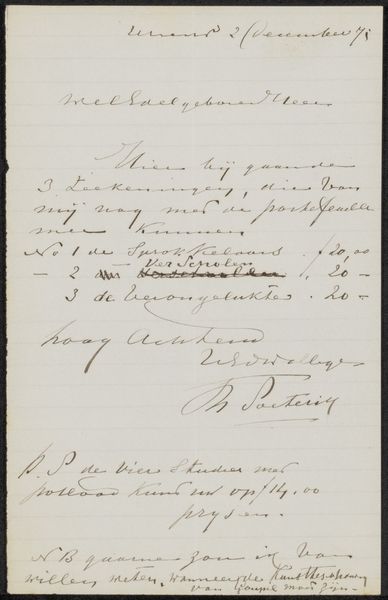 2 December 7
WelEdelgeboren Heer
Hier bij gaande
3 Teekeningen, die van
mij nog met de portefeuille
mee kunnen
No 1 de Sprokkelaars f 20,00
– 2 Verscholen , 20 –
3 de Verongelukte . 20 –
Hoog Achtend
Th
P.S de vier Studies met
potlood kunt u op f 14.00
prijsen.
NB gaarne zou ik van
willen weten, wanneer de
van Goupil moet zijn.